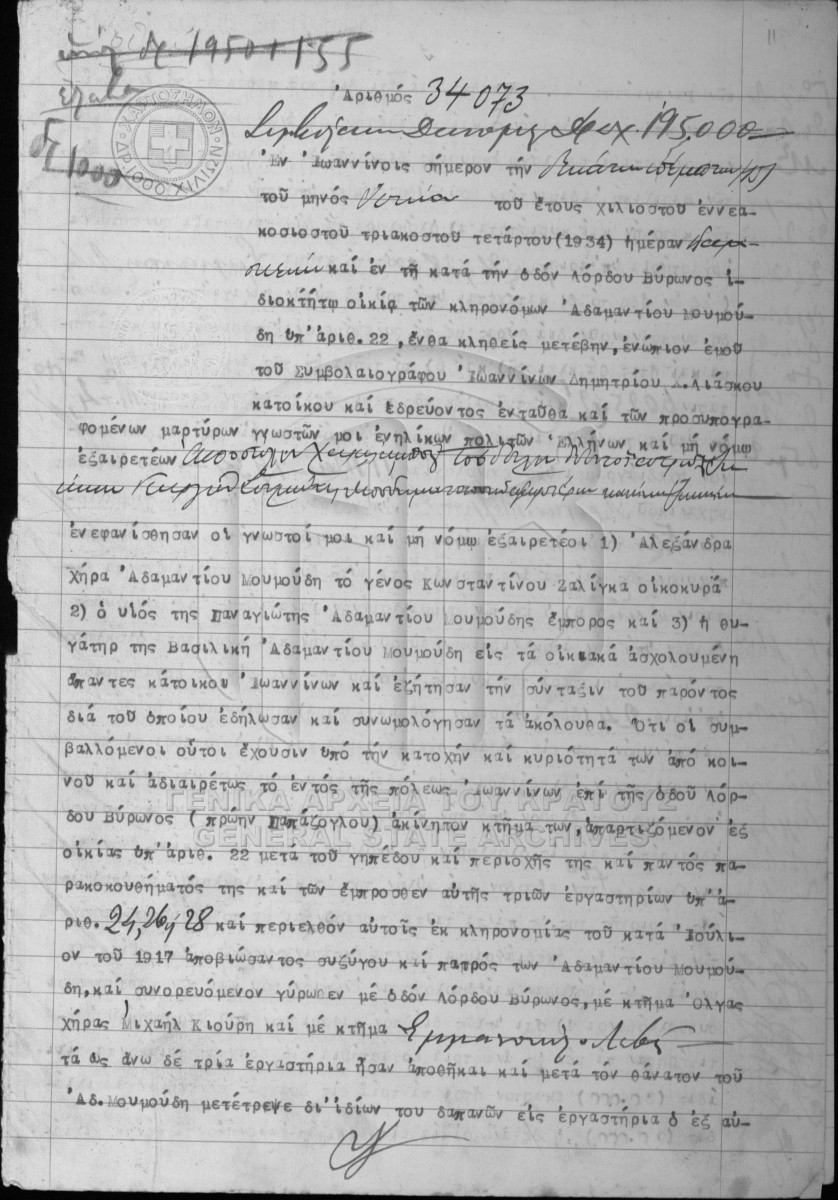 11
1950+155
ἔλαβα
δρ 1000
ΧΑΡΤΟΣΗΜΟΝ
Ἀριθμός 34073
195,000
Ἐν Ἰωαννίνοις σήμερον τήν
τοῦ μηνός τοῦ ἔτους χιλιοστοῦ ἐννεα-
κοσιοστοῦ τριακοστοῦ τετάρτου (1934) ἡμέραν Παρα-
σκευήν καί ἐν τῇ κατά τήν ὁδόν Λόρδου Βύρωνος ἰ-
διοκτήτῳ οἰκίᾳ τῶν κληρονόμων Ἀδαμαντίου Μουμού-
δη ὑπ' ἀριθ. 22, ἔνθα κληθείς μετέβην, ἐνώπιον ἐμοῦ
τοῦ Συμβολαιογράφου Ἰωαννίνων Δημητρίου Λιάσκου
κατοίκου καί ἑδρεύοντος ἐνταῦθα καί τῶν προσυπογρα-
φομένων μαρτύρων γνωστῶν μοι ἐνηλίκων πολιτῶν Ἑλλήνων καί μή νόμῳ
ἐξαιρετέων
ἐνεφανίσθησαν οἱ γνωστοί μοι καί μή νόμῳ ἐξαιρετέοι 1) Ἀλεξάνδρα
χήρα Ἀδαμαντίου Μουμούδη τό γένος Κωνσταντίνου Ζαλίγκα οἰκοκυρά
2) ὁ υἱός της Παναγιώτης Ἀδαμαντίου Μουμούδης ἔμπορος καί 3) ἡ θυ-
γάτηρ της Βασιλική Ἀδαμαντίου Μουμούδη εἰς τά οἰκιακά ἀσχολουμένη
ἅπαντες κάτοικου Ἰωαννίνων καί ἐζήτησαν τήν σύνταξιν τοῦ παρόντος
διά τοῦ ὁποίου ἐδήλωσαν καί συνωμολόγησαν τά ἀκόλουθα. Ὅτι οἱ συμ-
βαλλόμενοι οὗτοι ἔχουσιν ὑπό τήν κατοχήν καί κυριότητά των ἀπό κοι-
νοῦ καί ἀδιαιρέτως τό ἐντός τῆς πόλεως Ἰωαννίνων ἐπί τῆς ὁδοῦ Λόρ-
δου Βύρωνος ( πρώην Παπάζογλου) ἀκίνητον κτῆμα των, ἀπαρτιζόμενον ἐξ
οἰκίας ὑπ' ἀριθ. 22 μετά τοῦ γηπέδου καί περιοχῆς της καί παντός πα-
ρακοκουθήματός της καί τῶν ἔμπροσθεν αὐτῆς τριῶν ἐργαστηρίων ὑπ' ἀ-
ριθ. 24, 26 ἤ 28 καί περιελθόν αὐτοῖς ἐκ κληρονομίας τοῦ κατά Ἰούλι-
ον τοῦ 1917 ἀποβιώσαντος συζύγου καί πατρός των Ἀδαμαντίου Μουμού-
δη, καί συνορευόμενον γύρωθεν μέ ὁδόν Λόρδου Βύρωνος, μέ κτῆμα Ὄλγας
χήρας Μιχαήλ Κιούρη καί μέ κτῆμα Ἐμμανουήλ Λεβῆ
τά ὡς ἄνω δέ τρία ἐργαστήρια ἦσαν ἀποθῆκαι καί μετά τόν θάνατον τοῦ
Ἀδ. Μουμούδη μετέτρεψε δι' ἰδίων του δαπανῶν εἰς ἐργαστήρια ὁ ἐξ αὐ-
ΓΕΝΙΚΑ ΑΡΧΕΙΑ ΤΟΥ ΚΡΑΤΟΥΣ
GENERAL STATE ARCHIVES